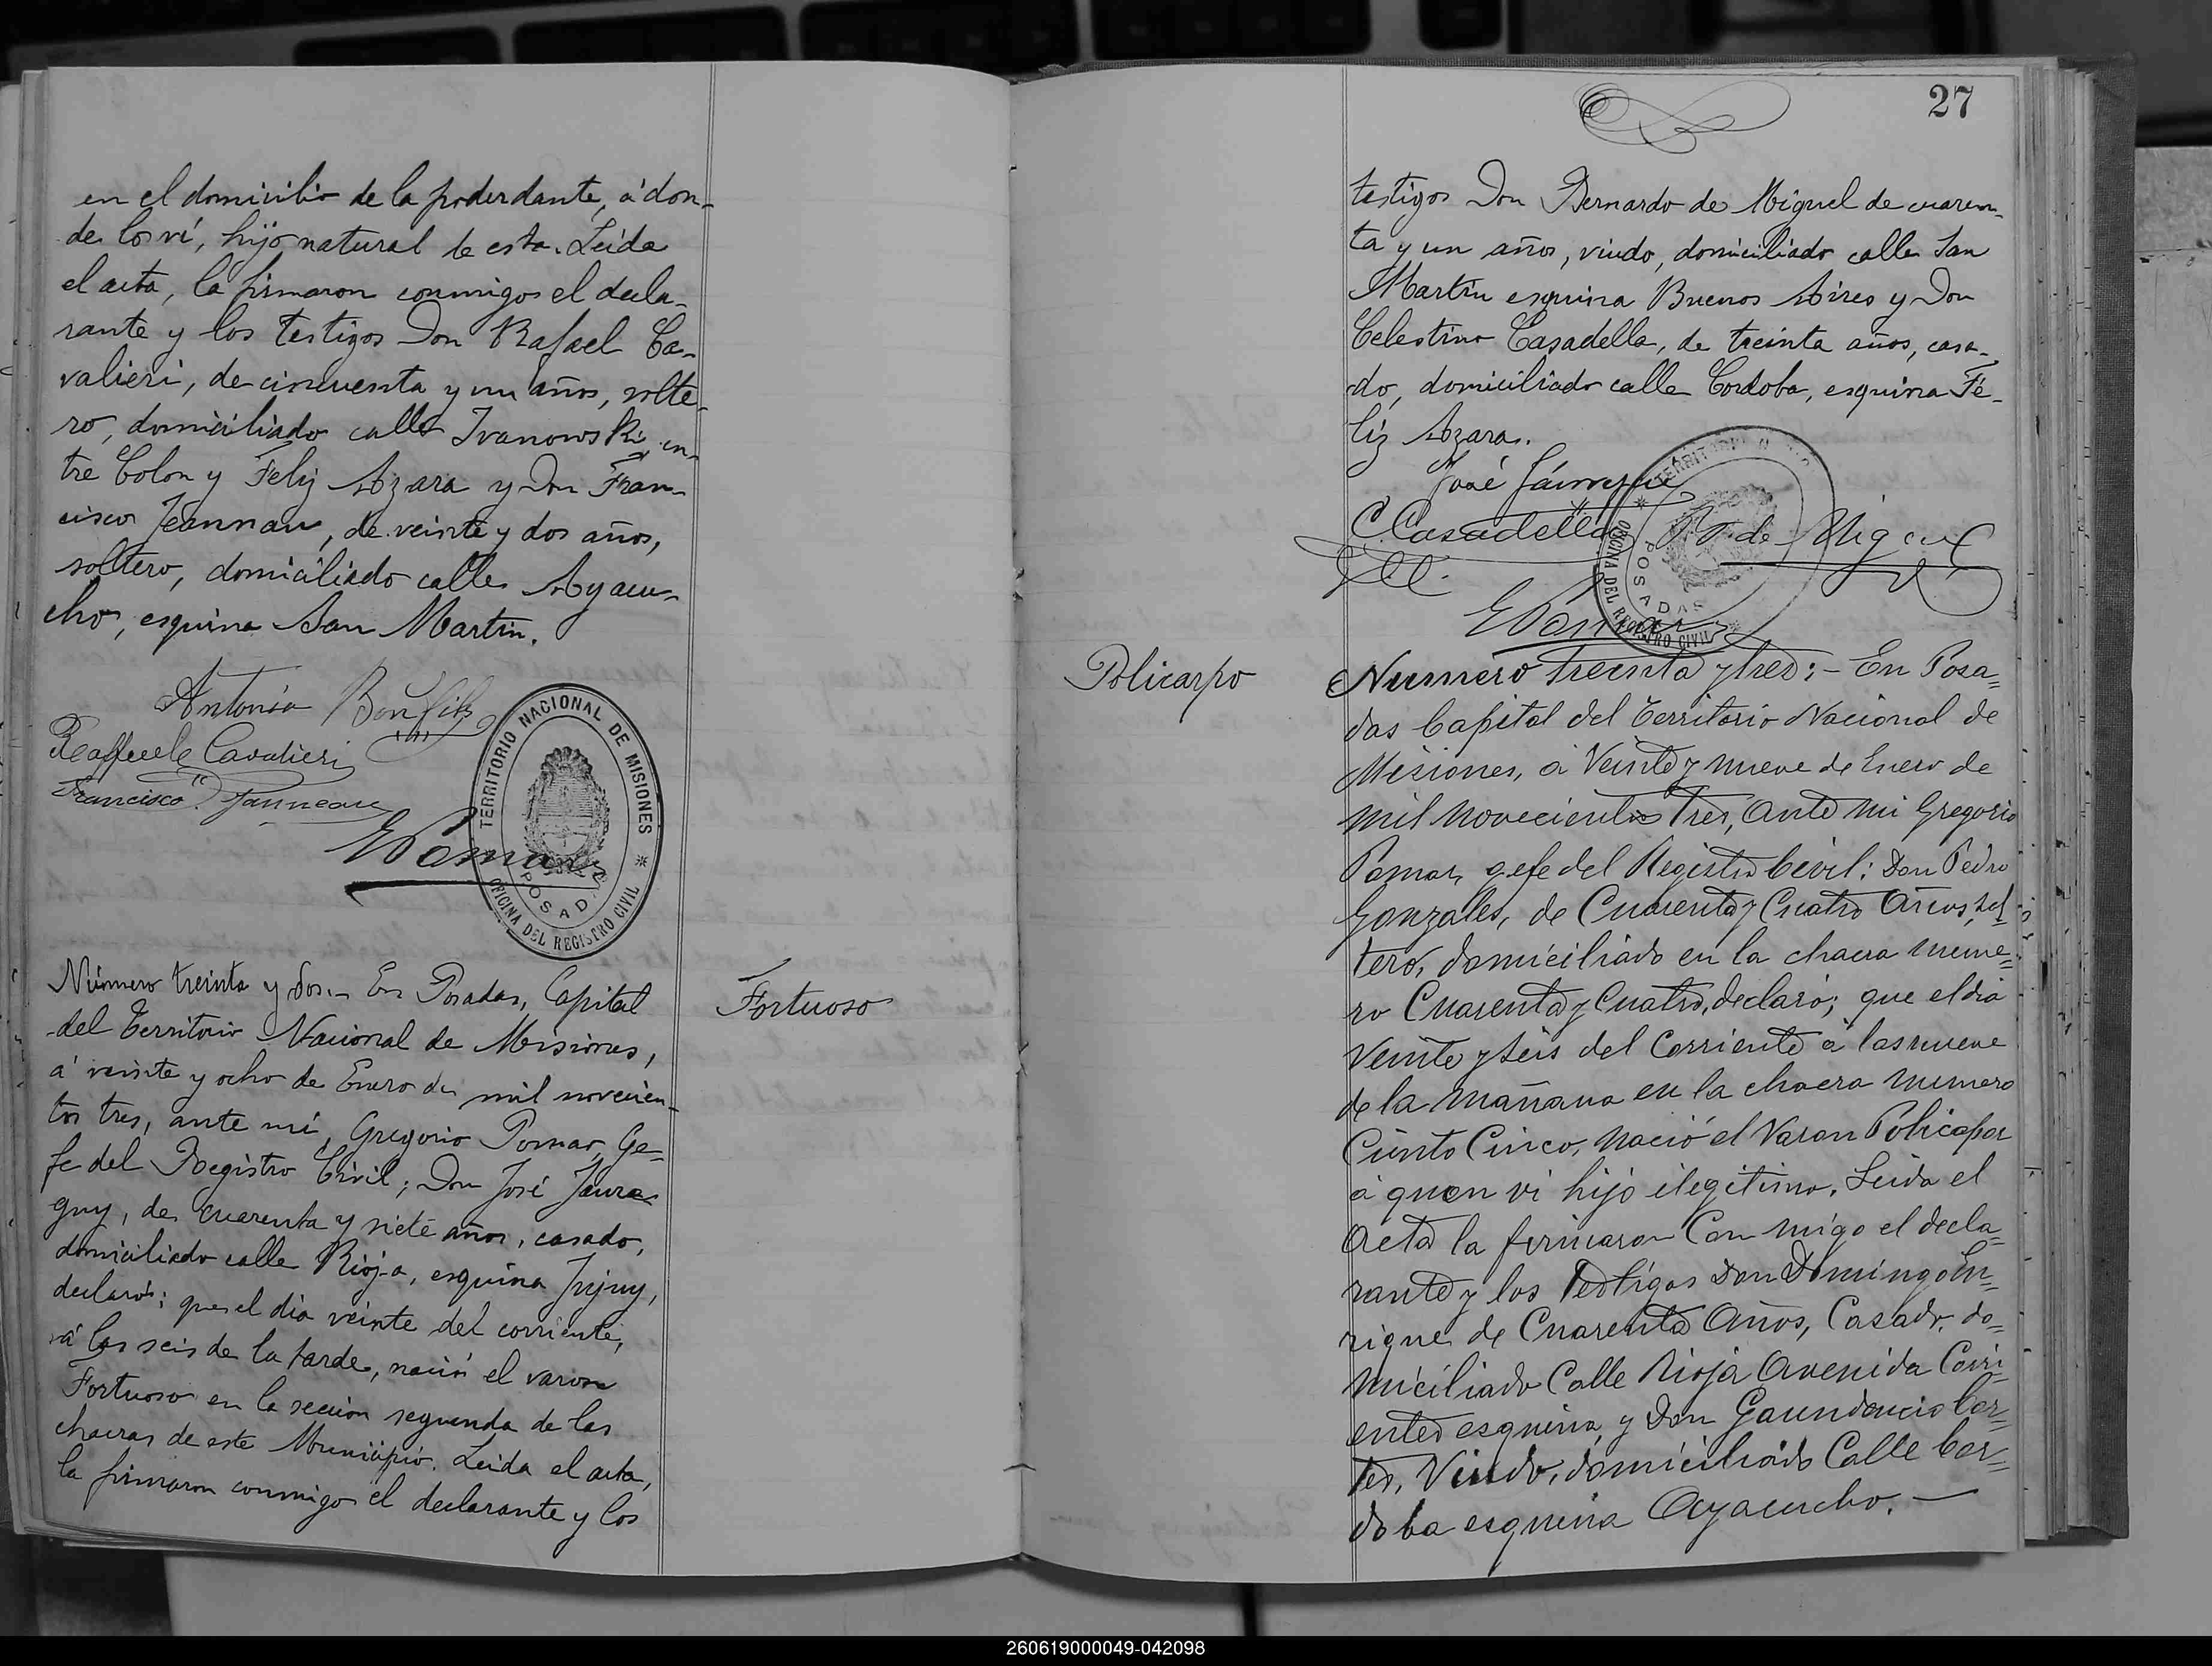 en el domicilio de la poderdante, á don-
de lo ví, hijo natural de esta. Leida
el acta, la firmaron conmigo el decla-
rante y los testigos Don Rafael Ca-
valieri, de cincuenta y un años, solte-
ro, domiciliado calle Ivanowski en-
tre Colon y Feliz Azara y Don Fran-
cisco Jeannau, de veinte y dos años,
soltero, domiciliado calle Ayacu-
cho, esquina San Martin.
Antonio Bonfils
Raffaele Cavalieri
Francisco Janneau
GPomar
TERRITORIO NACIONAL DE MISIONES
POSADAS
OFICINA DEL REGISTRO CIVIL
Número treinta y dos.- En Posadas, Capital
del Territorio Nacional de Misiones,
á veinte y ocho de Enero de mil novecien-
tos tres, ante mí, Gregorio Pomar, Ge-
fe del Registro Civil; Don José Jaure
guy, de cuarenta y siete años, casado,
domiciliado calle Rioja, esquina Jujuy,
declaró: que el dia veinte del corriente,
á las seis de la tarde, nació el varon
Fortuoso en la seccion segunda de las
chacras de este Municipio. Leida el acta,
la firmaron conmigo el declarante y los
Fortuoso
27
testigos Don Bernardo de Miguel de cuaren-
ta y un años, viudo, domiciliado calle San
Martin esquina Buenos Aires y Don
Celestino Casadella, de treinta años, casa-
do, domiciliado calle Cordoba, esquina Fé-
liz Azara.
José
C. Casadella
B. de Miguel
GPomar
TERRITORIO
POSADAS
OFICINA DEL REGISTRO CIVIL
Policarpo
Numero treinta y tres:- En Posa=
das Capital del Territorio Nacional de
Misiones, á Veinte y nueve de Enero de
mil novecientos tres, ante mi Gregorio
Pomar, gefe del Registro Civil: Don Pedro
Gonzales, de Cuarenta y Cuatro Años, sol=
tero, domiciliado en la chacra nume=
ro Cuarenta y Cuatro, declaró; que el dia
Veinte y seis del Corriente á las nueve
de la mañana en la chacra numero
Ciento Cinco, nació el Varon Policapor
á quen vi hijo ilegitimo. Leida el
Acta la firmaron Con migo el decla=
rante y los Testigos Don Domingo En=
rique de Cuarenta Años, Casado, do=
miciliado Calle Rioja Avenida Corri=
entes esquina, y Don Gaundencio Cor=
tes, Viudo, domiciliado Calle Cor=
doba esquina Ayacucho.—
260619000049-042098